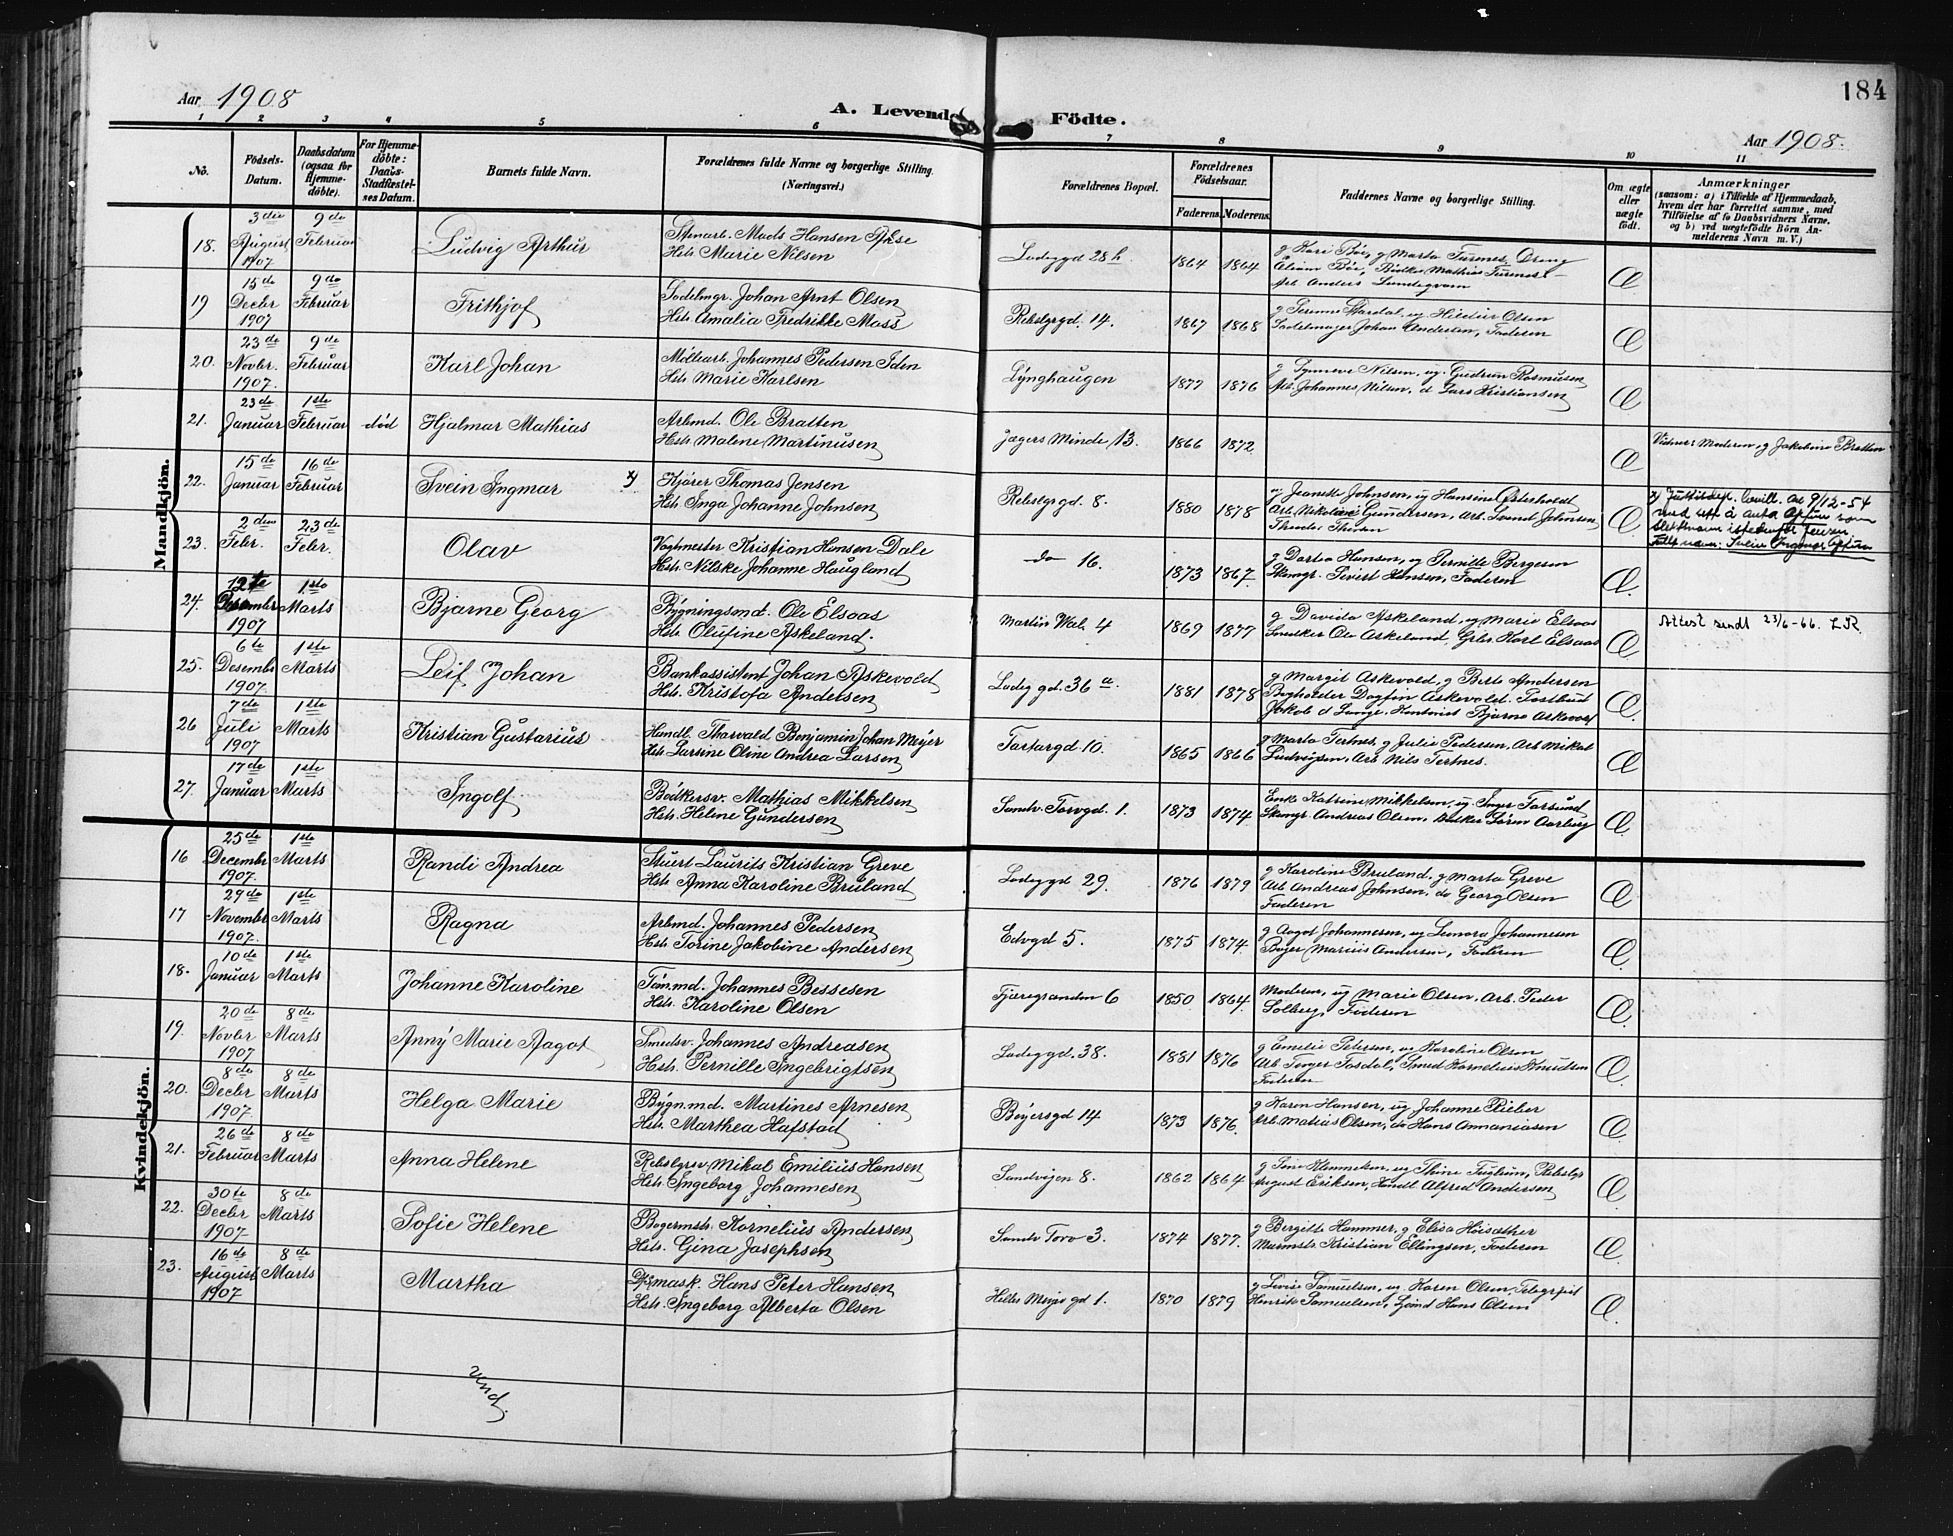 184
Aar 1908
A. Levende Födte.
Aar 1908.
1 2 3 4 5 6 7 8 9 10 11
No.
Födsels-
Datum.
Daabsdatum
(ogsaa for
Hjemme-
döbte).
For Hjemme-
döbte:
Daabs-
Stadfæstel-
ses Datum.
Barnets fulde Navn.
Forældrenes fulde Navne og borgerlige Stilling.
(Næringsvei.)
Forældrenes Bopæl.
Forældrenes
Födselsaar.
Faderens. Moderens.
Faddernes Navne og borgerlige Stilling.
Om ægte
eller
uægte
födt.
Anmærkninger
(saasom: a) i Tilfælde af Hjemmedaab,
hvem der har forrettet samme, med
Tilföielse af to Daabsvidners Navne,
og b) ved uægtefödte Börn An-
melderens Navn m. V.)
Mandkjön.
18. 3die August 1907
9de Februar
Ludvig Arthur
Mads Hansen
Hstr. Marie Nilsen
Ladeggd 28 h
1864 1864
Æ
19 15de Decbr 1907
9de Februar
Frithjof
Sadelmgr. Johan Arnt Olsen
Hstr. Amalia Fredrikke Moss
Rebslgrgd. 14.
1867 1868
Sadelmager Johan Andersen, Faderen
Æ
20. 23de Novbr. 1907.
9de Februar
Karl Johan
Møllearb. Johannes Pedersen
Hstr. Marie Karlsen
Lÿnghaugen
1877 1876
g Synneve Nilsen, ug Gudrun Rasmusen
Arb. Johannes Nilsen, d Lars Kristiansen
Æ
21. 23de Januar
1ste Februar
død
Hjalmar Mathias
Arbmd. Ole Bratten
Hstr. Malene Martinusen
Jægers Minde 13.
1866 1872
Æ
Vidner: Moderen, g Jakobine Bratten
22. 15de Januar
16de Februar
Svein Ingmar x)
Kjører Thomas Jensen
Hstr. Inga Johanne Johnsen
Rebslgrgd. 8.
1880 1878
Jeanette Johnsen, ug Hansine Østerholdt
Arb. Nikolai Gundersen, Arb. Svend Johnsen
Æ
x) Justisdep. bevill. av 9/12-54
med rett å anta som
slektsnavn istedenfor Jensen
Fullt navn: Svein Ingmar
23. 2den Febr.
23de Febr.
Olav
Vagtmester Kristian Hansen Dale
Hstr. Nilske Johanne Haugland
do 16.
1873 1867.
g Dorta Hansen, ug Pernille Bergesen
Skomgr. Sivert Hansen, Faderen
Æ.
24. 12te Desembr 1907
1ste Marts
Bjarne Georg
Bÿgningsmd. Ole Elsaas
Hstr. Olufine Askeland.
Martins Wal. 4
1869 1877
g Davida Askeland, ug Marie Elsaas
Ole Askeland, Karl Elsaas
Æ
Attest sendt 23/6-66. L.R.
25. 6te Desembr 1907.
1ste Marts
Leif Johan
Bankassistent Johan Askevold
Hstr. Kristofa Andersen
Ladeg gd. 36 a
1881 1878
g Margit Askevold, g Berte Andersen
Bogholder Dagfin Askevold. Postbud
Jakob d Lange. Kontorist Bjarne Askevold
Æ.
26 7de Juli 1907
1ste Marts
Kristian Gustavius
Handl. Tharvald Benjamin Johan Meÿer
Hstr. Larsine Oline Andrea Larsen
Tartargd. 10.
1865 1866
g Marta Tertnes, g Julie Pedersen, Arb. Mikal
Ludvigsen, Arb Nils Tertnes.
Æ
27. 17de Januar
1ste Marts
Ingolf
Bødkersv. Mathias Mikkelsen
Hstr. Helene Gundersen
Sandv. Torvgd. 1.
1873 1874
Enke Katrine Mikkelsen, ug Inger Farsund
Skomgr. Andreas Olsen, Bødker Søren Aarberg
Æ
Kvindekjön.
16 25de Decembr 1907.
1ste Marts
Randi Andrea
Stuert Laurits Kristian Greve
Hstr. Anna Karoline Bruland
Ladeggd 29.
1876 1879
g Karoline Bruland, g Marta Greve
Arb Andreas Johnsen, do Georg Olsen
Faderen
Æ
17 29de November 1907.
1ste Marts
Ragna
Arbmd. Johannes Pedersen
Hstr. Torine Jakobine Andersen
Edvgd 5.
1875 1874.
g Aagot Johannesen, ug Lenora Johannesen
Bager Marius Andersen, Faderen
Æ.
18. 10de Januar
1ste Marts
Johanne Karoline
Tøn.md. Johannes Bessesen
Hstr. Karoline Olsen
Tjæregranden 6
1850 1864.
Moderen, ug Marie Olsen, Arb. Peder
Solberg, Faderen
Æ.
19. 20de Novbr 1907
8de Marts
Annÿ Marie Aagot
Smedsv. Johannes Andreasen
Hstr. Pernille Ingebrigtsen
Ladeggd. 38.
1881 1876
g Emelie Petersen, ug Karoline Olsen
Arb. Fosdal, Smed Kornelius Knudsen
Faderen
Æ.
20. 8de Decbr 1907.
8de Marts
Helga Marie
Bÿgn.md. Martines Arnesen
Hstr. Marthea Hafstad
Beÿersgd 14
1873 1876.
g Karen Hansen, ug Johanne Rieber
Arb. Matias Olsen, do Hans Annaniasen
Æ
21. 26de Februar
8de Marts
Anna Helene
Rebslgrsv. Mikal Emilius Hansen
Hstr. Ingeborg Johannesen
Sandvigen 8.
1862 1864
August Eriksen, Handl Alfred Andersen
Æ
22. 30te Decbr 1907.
8de Marts
Sofie Helene
Bagermstr. Kornelius Andersen
Hstr. Gina Josephsen
Sandv Torv 3.
1874 1877.
g Bergitte Hammer, g Elisa Høisæther
Murmstr. Kristian Ellingsen, Faderen
Æ
23. 16de August 1907
8de Marts
Martha
Hans Peter Hansen
Hstr. Ingeborg Alberta Olsen
1870 1879
g Lovise Samuelsen, ug Karen Olsen, Telegrfist
Henrik Samuelsen, Hans Olsen
Æ.
vend.